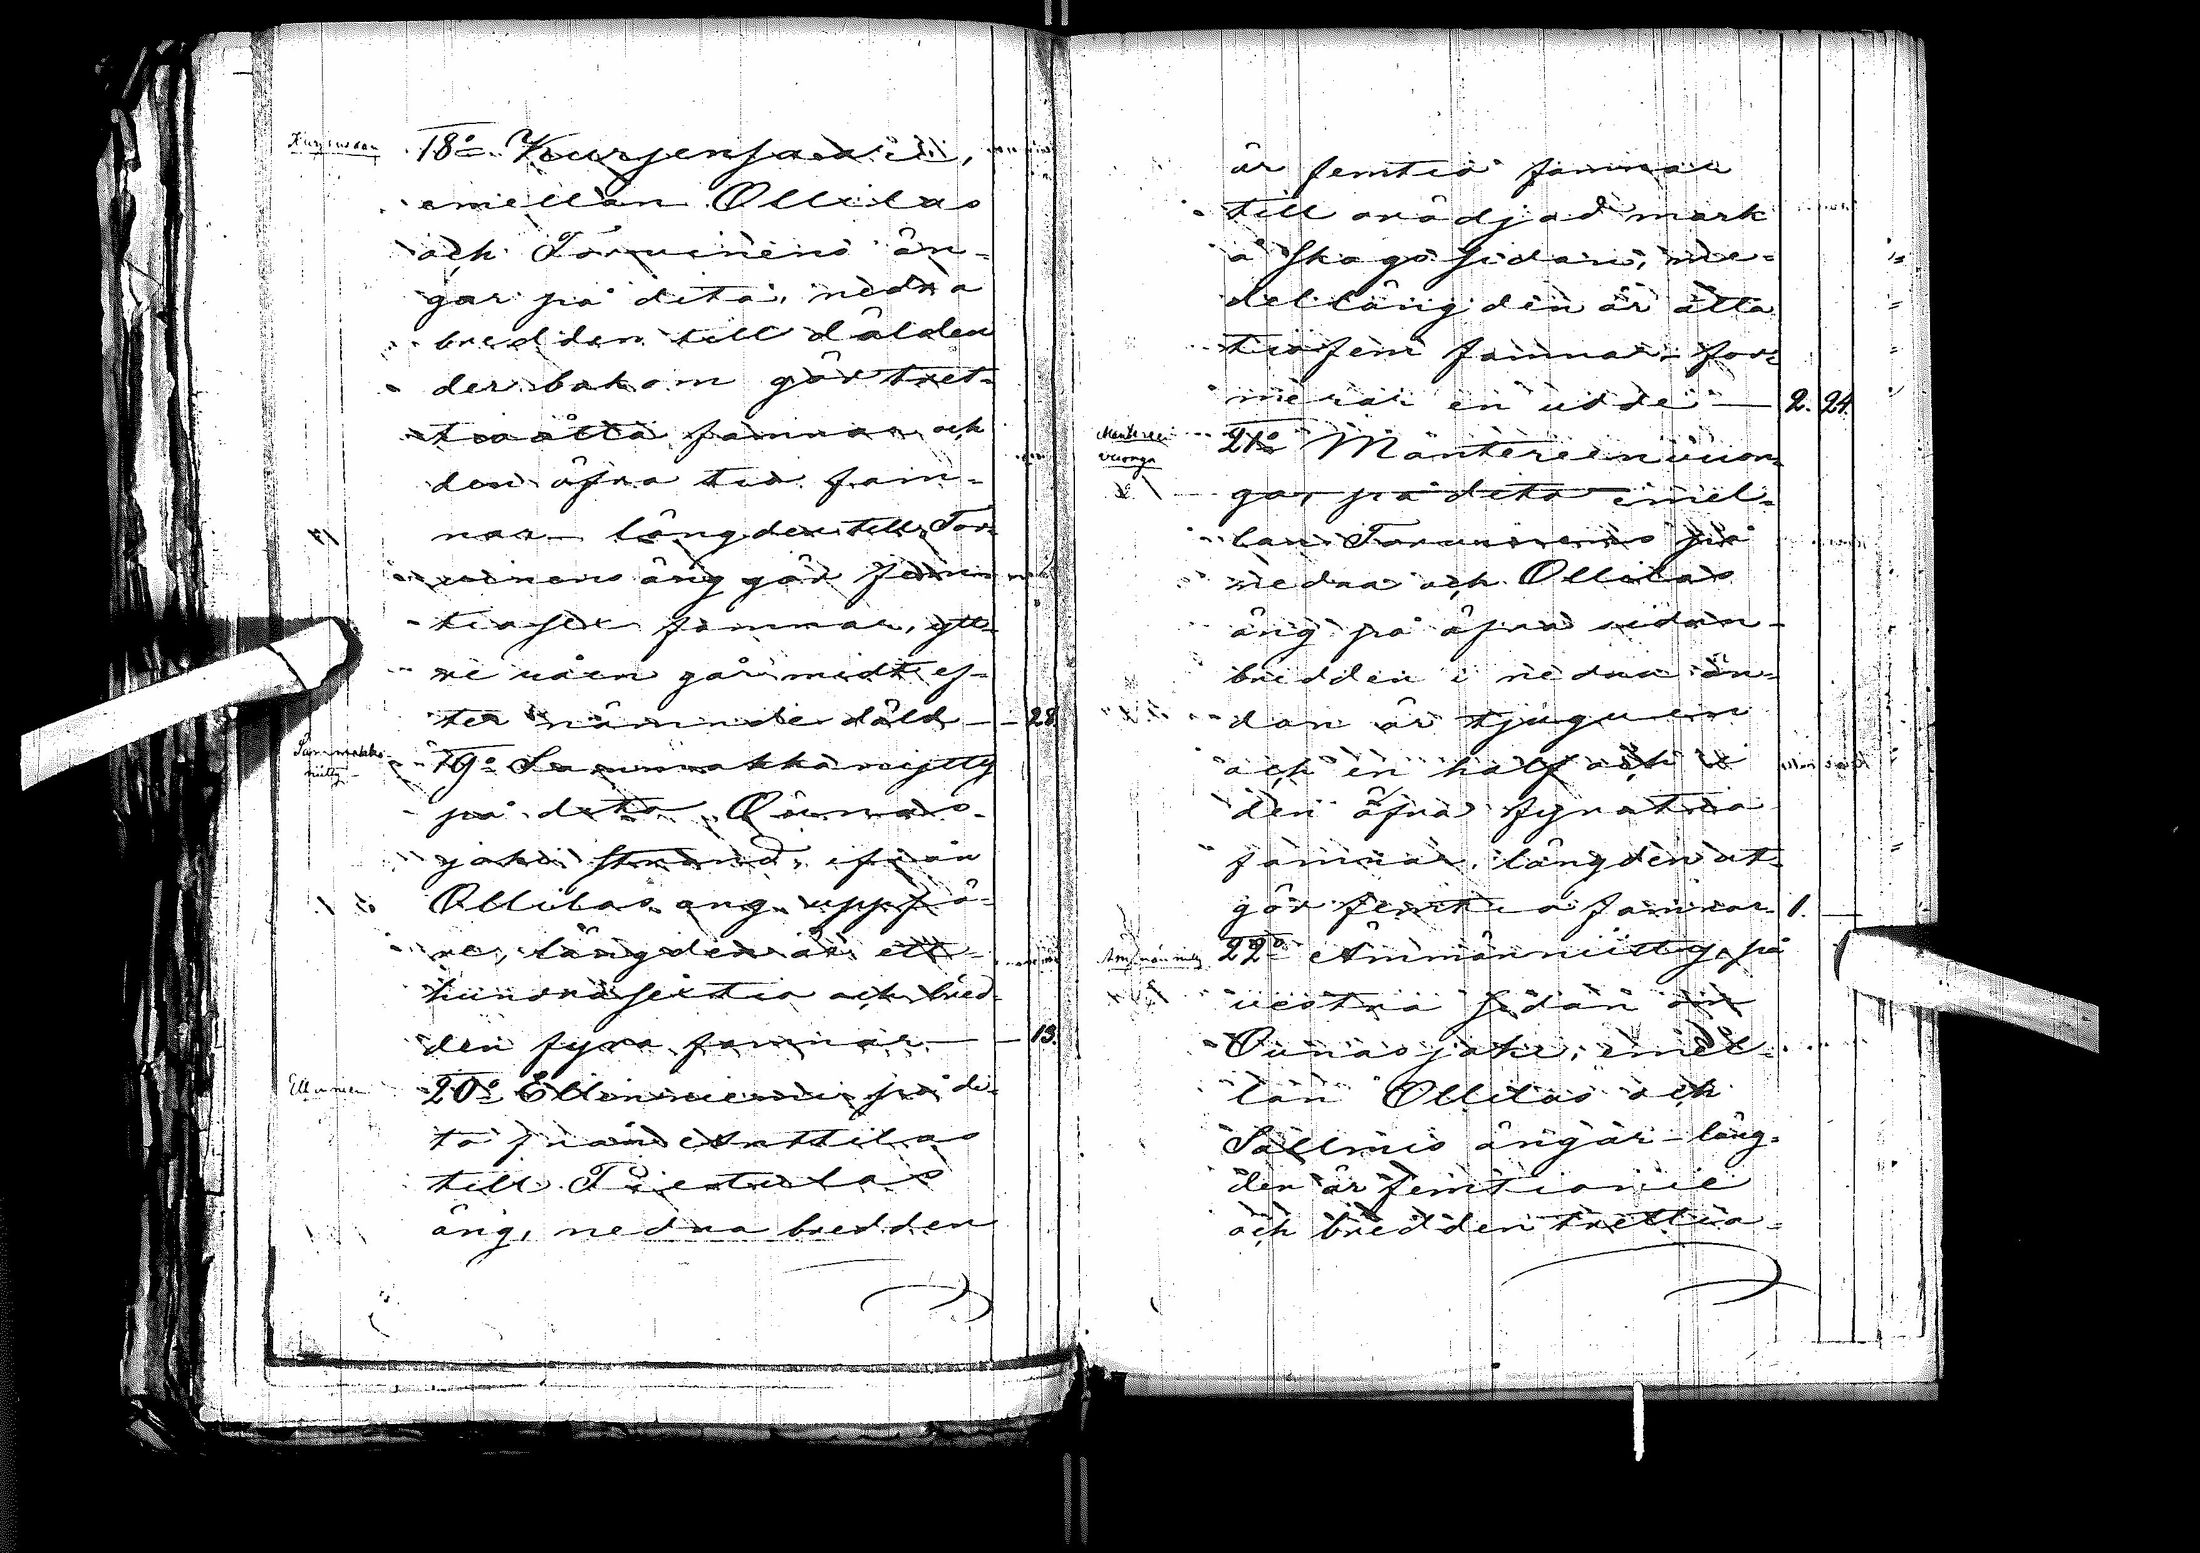 18:o Kurjensaari,
emellan Ollilas
och Torvinens än-
gar på dito, nedra
bredden till dälden
der bakom gör tret-
tioåtta famnar och
den öfra tio fam-
nar längden till Tor-
vinens äng gör fem-
tiosex famnar, ytt-
re råen går midt ef-
ter nämnde däld — — 28.
Sammakko-
niitty
19:o Sammakkoniitty
på dito Ounas-
joki strand, ifrån
Ollilas äng uppfö-
re, längden är ett-
hundrasextio och bred-
den fyra famnar — — 13.
20:o Elleniemi på di-
to från Anttilas
till Pietulas
äng, nedra bredden
är femtio famnar
till orödjad mark
å skogs sidan, me-
dellängden är åtta
tiofem famnar for-
merar en udde — 2. 24.
21:o Mäntereenvuon-
gar på dito emel-
lan Torvinens på
nedra och Ollilas
äng på öfra sidan
bredden i nedra än-
dan är tjuguen
och en half och i
den öfra fyratio
famnar, längden ut-
gör femtio famnar 1. —
22:o Ämmänniitty, på
vestra sidan om
Ounasjoki, emel-
lan Ollilas och
Sallmis ängar läng-
den är femtionie
och bredden trettio-